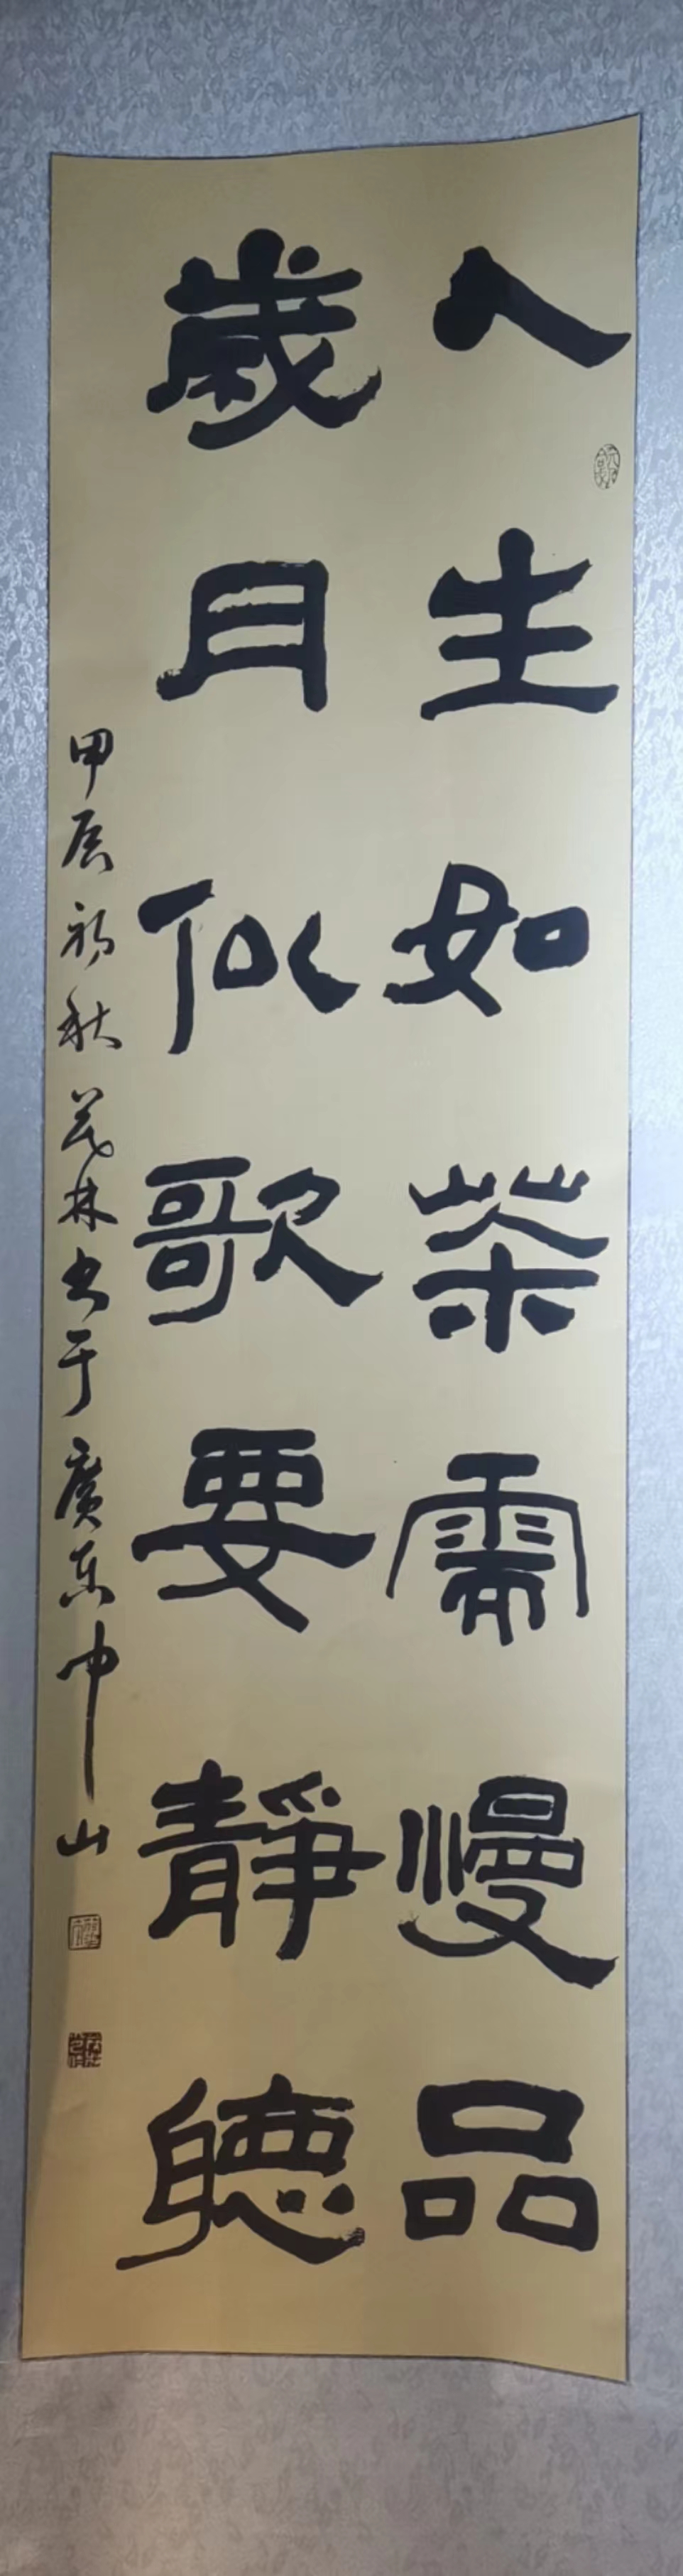 人生如茶需慢品
歲月似歌要靜聽
甲辰初秋茂林书于廣东中山